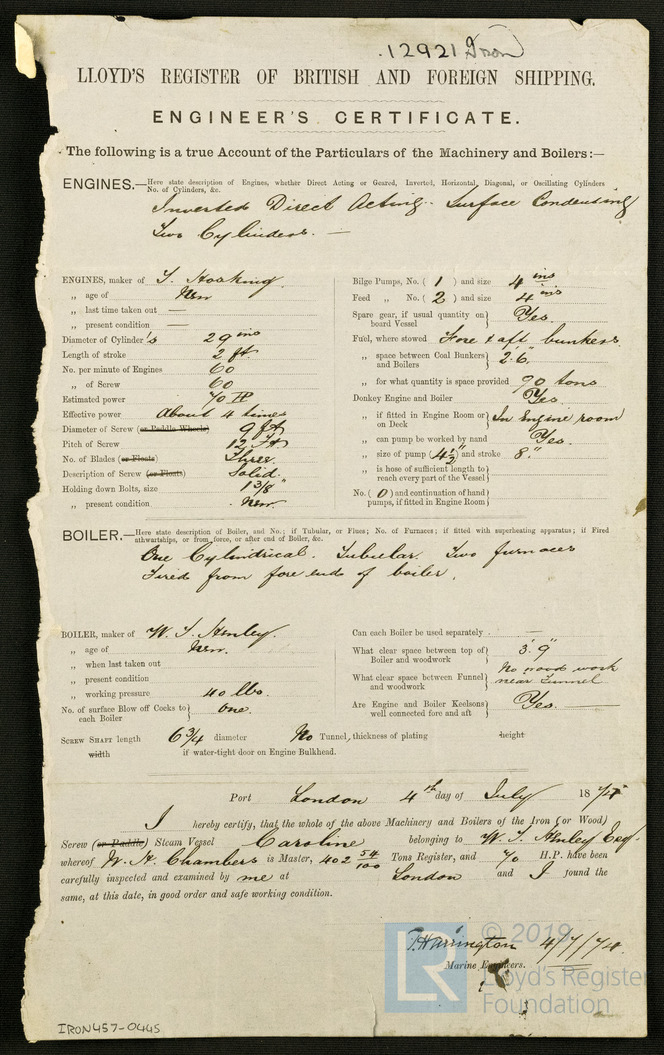 12921 Iron
LLOYD'S REGISTER OF BRITISH AND FOREIGN SHIPPING.
ENGINEER'S CERTIFICATE.
The following is a true Account of the Particulars of the Machinery and Boilers:—
ENGINES.—Here state description of Engines, whether Direct Acting or Geared, Inverted, Horizontal, Diagonal, or Oscillating Cylinders
No. of Cylinders, &c.
Inverted Direct Acting. Surface Condensing
Two Cylinders. —
ENGINES, maker of T. Hosking.
„ age of New
„ last time taken out —
„ present condition —
Diameter of Cylinder's 29 ins
Length of stroke 2 ft
No. per minute of Engines 60
„ of Screw 60
Estimated power 70 HP
Effective power About 4 times
Diameter of Screw (or Paddle Wheels) 9 ft
Pitch of Screw 12 ft
No. of Blades (or Floats) Three.
Description of Screw (or Floats) Solid.
Holding down Bolts, size 1 3/8"
„ present condition New.
Bilge Pumps, No. ( 1 ) and size 4 ins
Feed „ No. ( 2 ) and size 4 ins
Spare gear, if usual quantity on board Vessel } Yes.
Fuel, where stowed Fore & aft bunkers.
„ space between Coal Bunkers and Boilers } 2'.6"
„ for what quantity is space provided 90 tons
Donkey Engine and Boiler Yes.
„ if fitted in Engine Room or on Deck } In Engine room
„ can pump be worked by hand Yes.
„ size of pump (4 1/2) and stroke 8."
„ is hose of sufficient length to reach every part of the Vessel }
No. ( 0 ) and continuation of hand pumps, if fitted in Engine Room }
BOILER.—Here state description of Boiler, and No.; if Tubular, or Flues; No. of Furnaces; if fitted with superheating apparatus; if Fired
athwartships, or from fore, or after end of Boiler, &c.
One Cylindrical. Tubular. Two furnaces
Fired from fore end of boiler.
BOILER, maker of W. T. Henley.
„ age of New.
„ when last taken out
„ present condition
„ working pressure 40 lbs.
No. of surface Blow off Cocks to each Boiler } One.
Can each Boiler be used separately —
What clear space between top of Boiler and woodwork } 3'.9"
What clear space between Funnel and woodwork } No wood work near Funnel
Are Engine and Boiler Keelsons well connected fore and aft } Yes.
SCREW SHAFT length 6 3/4 diameter No Tunnel, thickness of plating height
width if water-tight door on Engine Bulkhead.
Port London 4th day of July 1874
I hereby certify, that the whole of the above Machinery and Boilers of the Iron (or Wood)
Screw (or Paddle) Steam Vessel Caroline belonging to W. T. Henley Esq.
whereof W. H. Chambers is Master, 402 54/100 Tons Register, and 70 H.P. have been
carefully inspected and examined by me at London and I found the
same, at this date, in good order and safe working condition.
T. Harrington 4/7/74.
Marine Engineers.
© 2019
LR
Lloyd's Register
Foundation
IRON457-0445